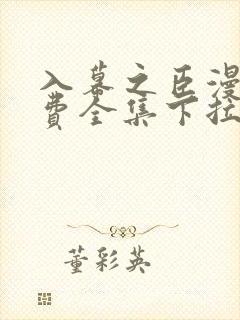 入幕之臣漫
费全集下拉
董彩英